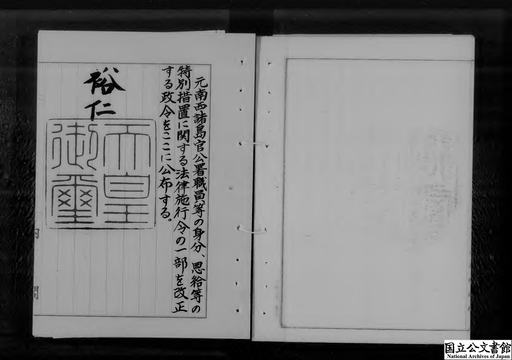 元南西諸島官公署職員等の身分、恩給等の
特別措置に関する法律施行令の一部を改正
する政令をここに公布する。
裕仁
天皇
御璽
内閣
国立公文書館
National Archives of Japan